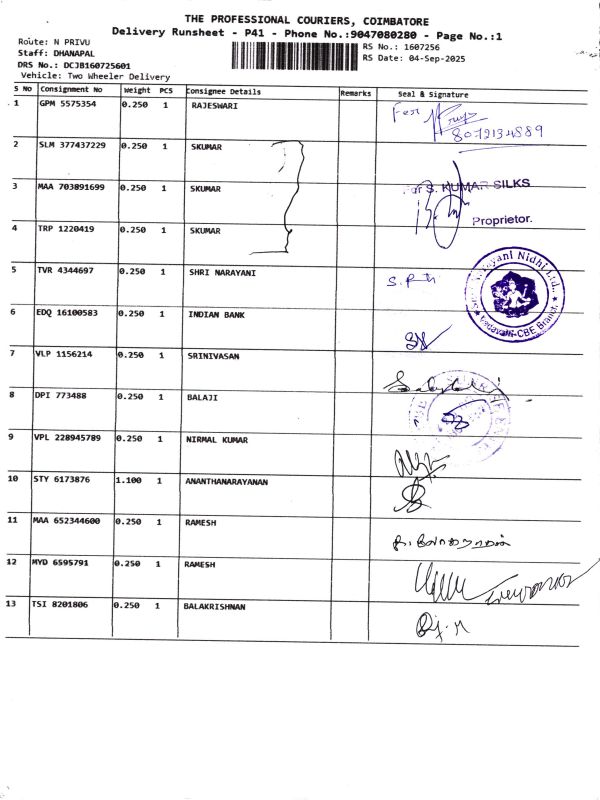 THE PROFESSIONAL COURIERS, COIMBATORE
Delivery Runsheet - P41 - Phone No.:9047080280 - Page No.:1
Route: N PRIVU
Staff: DHANAPAL
DRS No.: DCJB160725601
Vehicle: Two Wheeler Delivery
RS No.: 1607256
RS Date: 04-Sep-2025
S No Consignment No Weight PCS Consignee Details Remarks Seal & Signature
1 GPM 5575354 0.250 1 RAJESWARI
8072134889
2 SLM 377437229 0.250 1 SKUMAR
3 MAA 703891699 0.250 1 SKUMAR
For S. KUMAR SILKS
Proprietor.
4 TRP 1220419 0.250 1 SKUMAR
5 TVR 4344697 0.250 1 SHRI NARAYANI
Narayani Nidhi Ltd.,
Vadavalli-CBE Branch
6 EDQ 16100583 0.250 1 INDIAN BANK
7 VLP 1156214 0.250 1 SRINIVASAN
8 DPI 773488 0.250 1 BALAJI
9 VPL 228945789 0.250 1 NIRMAL KUMAR
10 STY 6173876 1.100 1 ANANTHANARAYANAN
11 MAA 652344600 0.250 1 RAMESH
12 MYD 6595791 0.250 1 RAMESH
13 TSI 8201806 0.250 1 BALAKRISHNAN